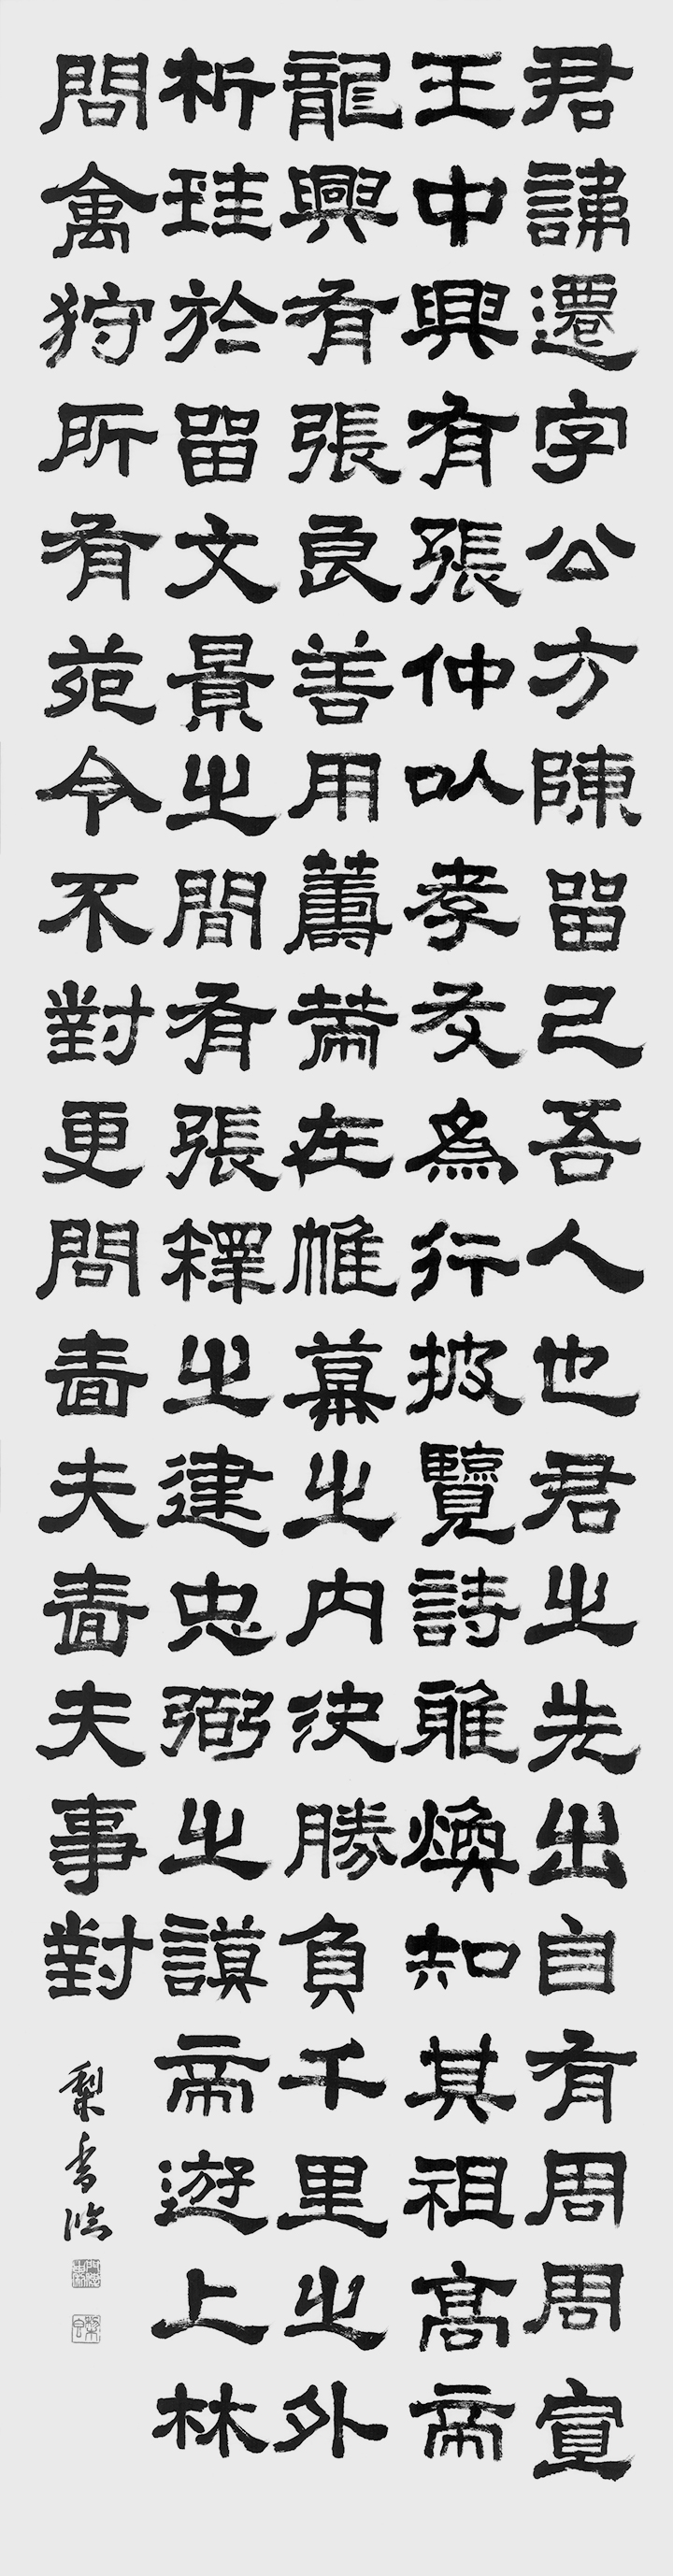 君諱遷字公方陳留己吾人也君之先出自有周周宣
王中興有張仲以孝友為行披覽詩雅煥知其祖高帝
龍興有張良善用籌策在帷幕之內決勝負千里之外
析珪於留文景之間有張釋之建忠弼之謨帝遊上林
問禽狩所有苑令不對更問嗇夫嗇夫事對
梨香臨